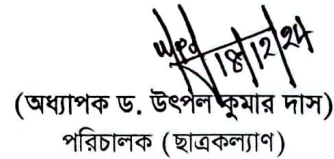 18/12/24
(অধ্যাপক ড. উৎপল কুমার দাস)
পরিচালক (ছাত্রকল্যাণ)